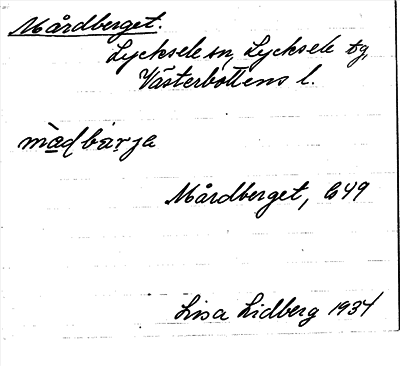 Mårdberget.
Lycksele sn, Lycksele tg,
Västerbottens l.
Mårdberget, 649
Lisa Lidberg 1934